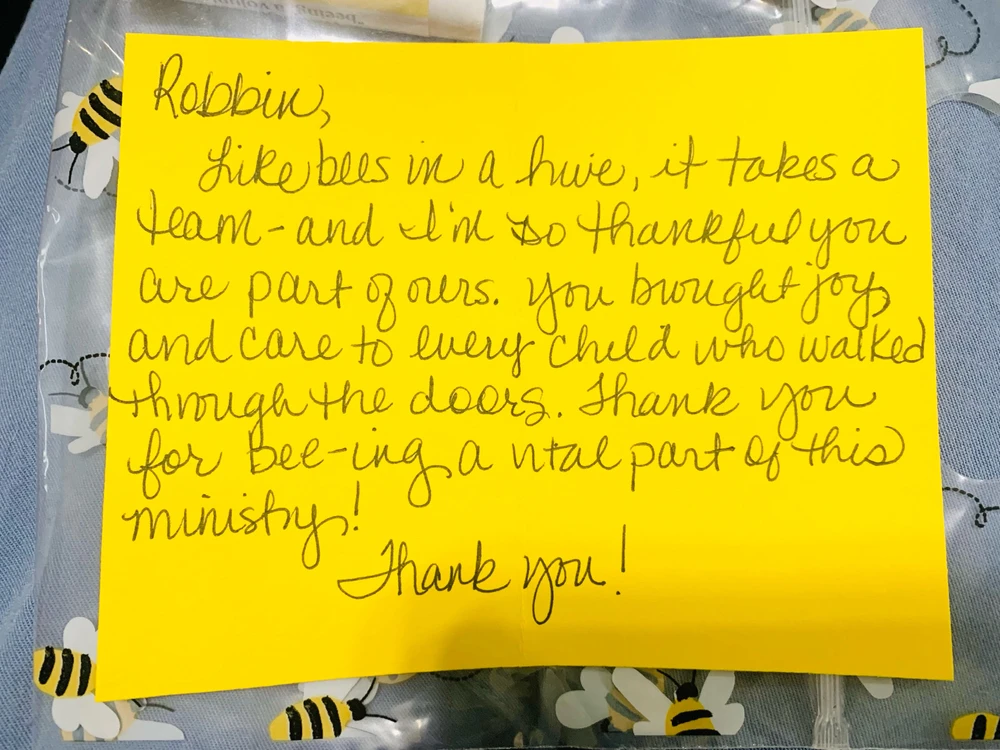 "beeing a volun
Robbin,
Like bees in a hive, it takes a
team - and I'm so thankful you
are part of ours. You brought joy
and care to every child who walked
through the doors. Thank you
for bee-ing a vital part of this
ministry!
Thank you!